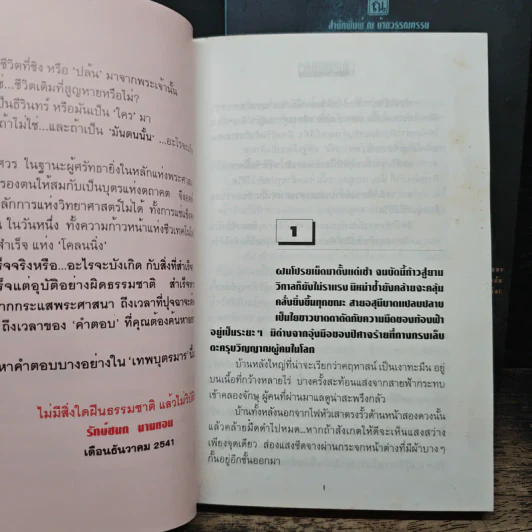 สำนักพิมพ์ ณ บ้านวรรณกรรม
ชีวิตที่ชิง หรือ 'ปล้น' มาจากพระเจ้านั้น
ช่...ชีวิตเดิมที่สูญหายหรือไม่?
ป็นธีรินทร์ หรือมันเป็น 'ใคร' มา
ถ้าไม่ใช่...และถ้าเป็น 'มันคนนั้น'
ศวร ในฐานะผู้ศรัทธายิ่งในหลักแห่งพระศาส
รองตนให้สมกับเป็นบุตรแห่งตถาคต
ลักการแห่งวิทยาศาสตร์ไม่ได้
น ในวันหนึ่ง ทั้งความก้าวหน้าแห่งชีวเทคโนโล
สำเร็จ แห่ง 'โคลนนิ่ง'
ร็จจริงหรือ...อะไรจะบังเกิด กับสิ่งที่สำเร็จ
ร็จแต่อุบัติอย่างผิดธรรมชาติ
ากกระแสพระศาสนา ถึงเวลาที่ปุจฉาจะ
ถึงเวลาของ 'คำตอบ' ที่คุณต้องค้นหา
หาคำตอบบางอย่างใน 'เทพบุตรมาร'
ไม่มีสิ่งใดฝืนธรรมชาติ แล้วไม่วิบัติ
รักษ์ชนก นามทอน
เดือนธันวาคม 2541
1
ฝนโปรยเม็ดมาตั้งแต่เช้า จนบัดนี้ก้าวสู่ยาม
วิกาลก็ยังไม่ราแรง มิหนำซ้ำยังคล้ายจะคลุ้ม
คลั่งยิ่งขึ้นทุกขณะ สายอสุนีบาตแปลบปลาบ
เป็นใยขาวบาดตาตัดกับความมืดของท้องฟ้า
อยู่เป็นระยะๆ มิต่างจากอุ้งมือของปีศาจร้ายที่กางกรงเล็บ
ตะครุบวิญญาณผู้คนในโลก
บ้านหลังใหญ่ที่น่าจะเรียกว่าคฤหาสน์ เป็นเงาทะมึน อยู่
บนเนื้อที่กว้างหลายไร่ บางครั้งสะท้อนแสงจากสายฟ้ากระทบ
เข้าคลองจักษุ ผู้คนที่ผ่านมาแลดูน่าสะพรึงกลัว
บ้านทั้งหลังนอกจากไฟหัวเสาตรงรั้วด้านหน้าสองดวงนั้น
แล้วคล้ายมืดดำไปหมด...หากถ้าสังเกตให้ดีจะเห็นแสงสว่าง
เพียงจุดเดียว ส่องแสงซีดจางผ่านกระจกหน้าต่างที่มีผ้าบางๆ
กั้นอยู่อีกชั้นออกมา
1